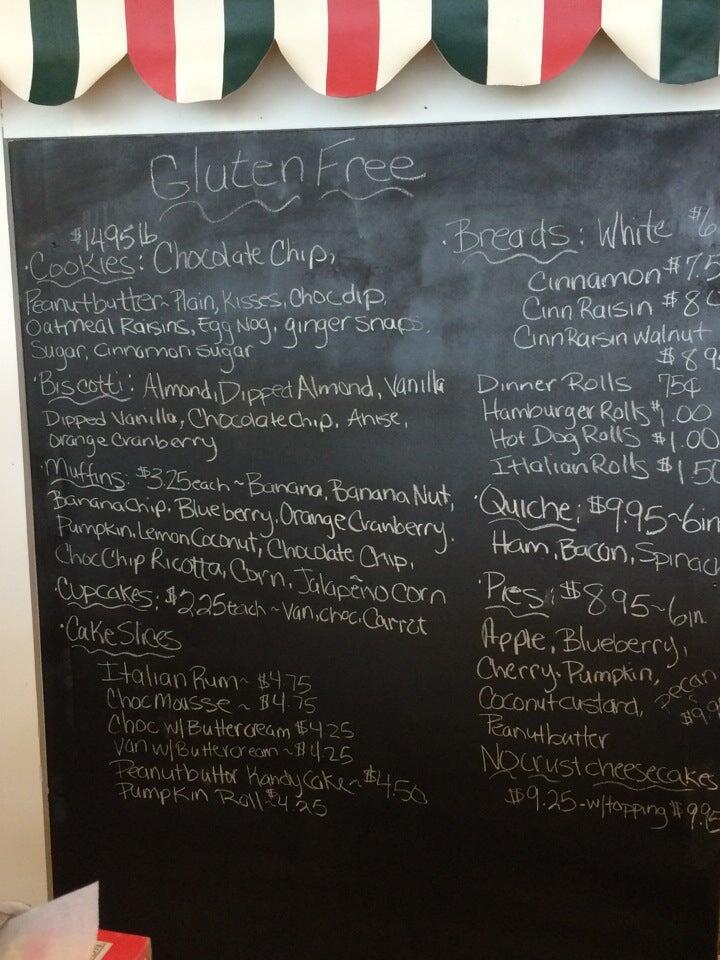 Gluten Free
$14.95 lb
· Cookies: Chocolate Chip,
Peanutbutter~Plain, Kisses, Chocdip,
Oatmeal Raisins, Egg Nog, ginger snaps,
Sugar, Cinnamon Sugar
· Biscotti: Almond, Dipped Almond, Vanilla
Dipped Vanilla, Chocolate Chip, Anise,
Orange Cranberry
· Muffins: $3.25 each ~ Banana, Banana Nut,
Banana chip, Blueberry, Orange Cranberry,
Pumpkin, Lemon Coconut, Chocolate Chip,
Choc Chip Ricotta, Corn, Jalapeño Corn
· Cupcakes: $2.25 each ~ Van, choc, Carrot
· Cake Slices
Italian Rum ~ $4.75
Choc Mousse ~ $4.75
Choc w/ Buttercream $4.25
Van w/ Buttercream ~ $4.25
Peanutbutter Kandy Cake ~ $4.50
Pumpkin Roll $4.25
· Breads: White $6
Cinnamon $7.5
Cinn Raisin $8
Cinn Raisin Walnut
$8.9
Dinner Rolls 75¢
Hamburger Rolls $1.00
Hot Dog Rolls $1.00
Italian Rolls $1.50
· Quiche: $9.95 ~ 6in
Ham, Bacon, Spinach
· Pies: $8.95 ~ 6in.
Apple, Blueberry,
Cherry, Pumpkin,
Coconut custard, Pecan
$9.9
Peanutbutter
No crust cheesecakes
$9.25 - w/topping $9.95